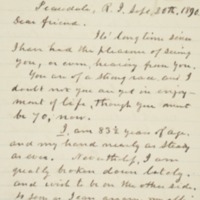 Peacedale, R. I. Sept. 20th, 1890.
Dear friend.
It's long time since
I have had the pleasure of seeing
you, or even hearing from you.
You are of a strong race and I
doubt not you are yet in enjoy-
ment of life, though you must
be 70, now.
I am 83½ years of age.
and my hand nearly as steady
as ever. Nevertheless, I am
greatly broken down lately.
and wish to be on the other side.
So soon as I am